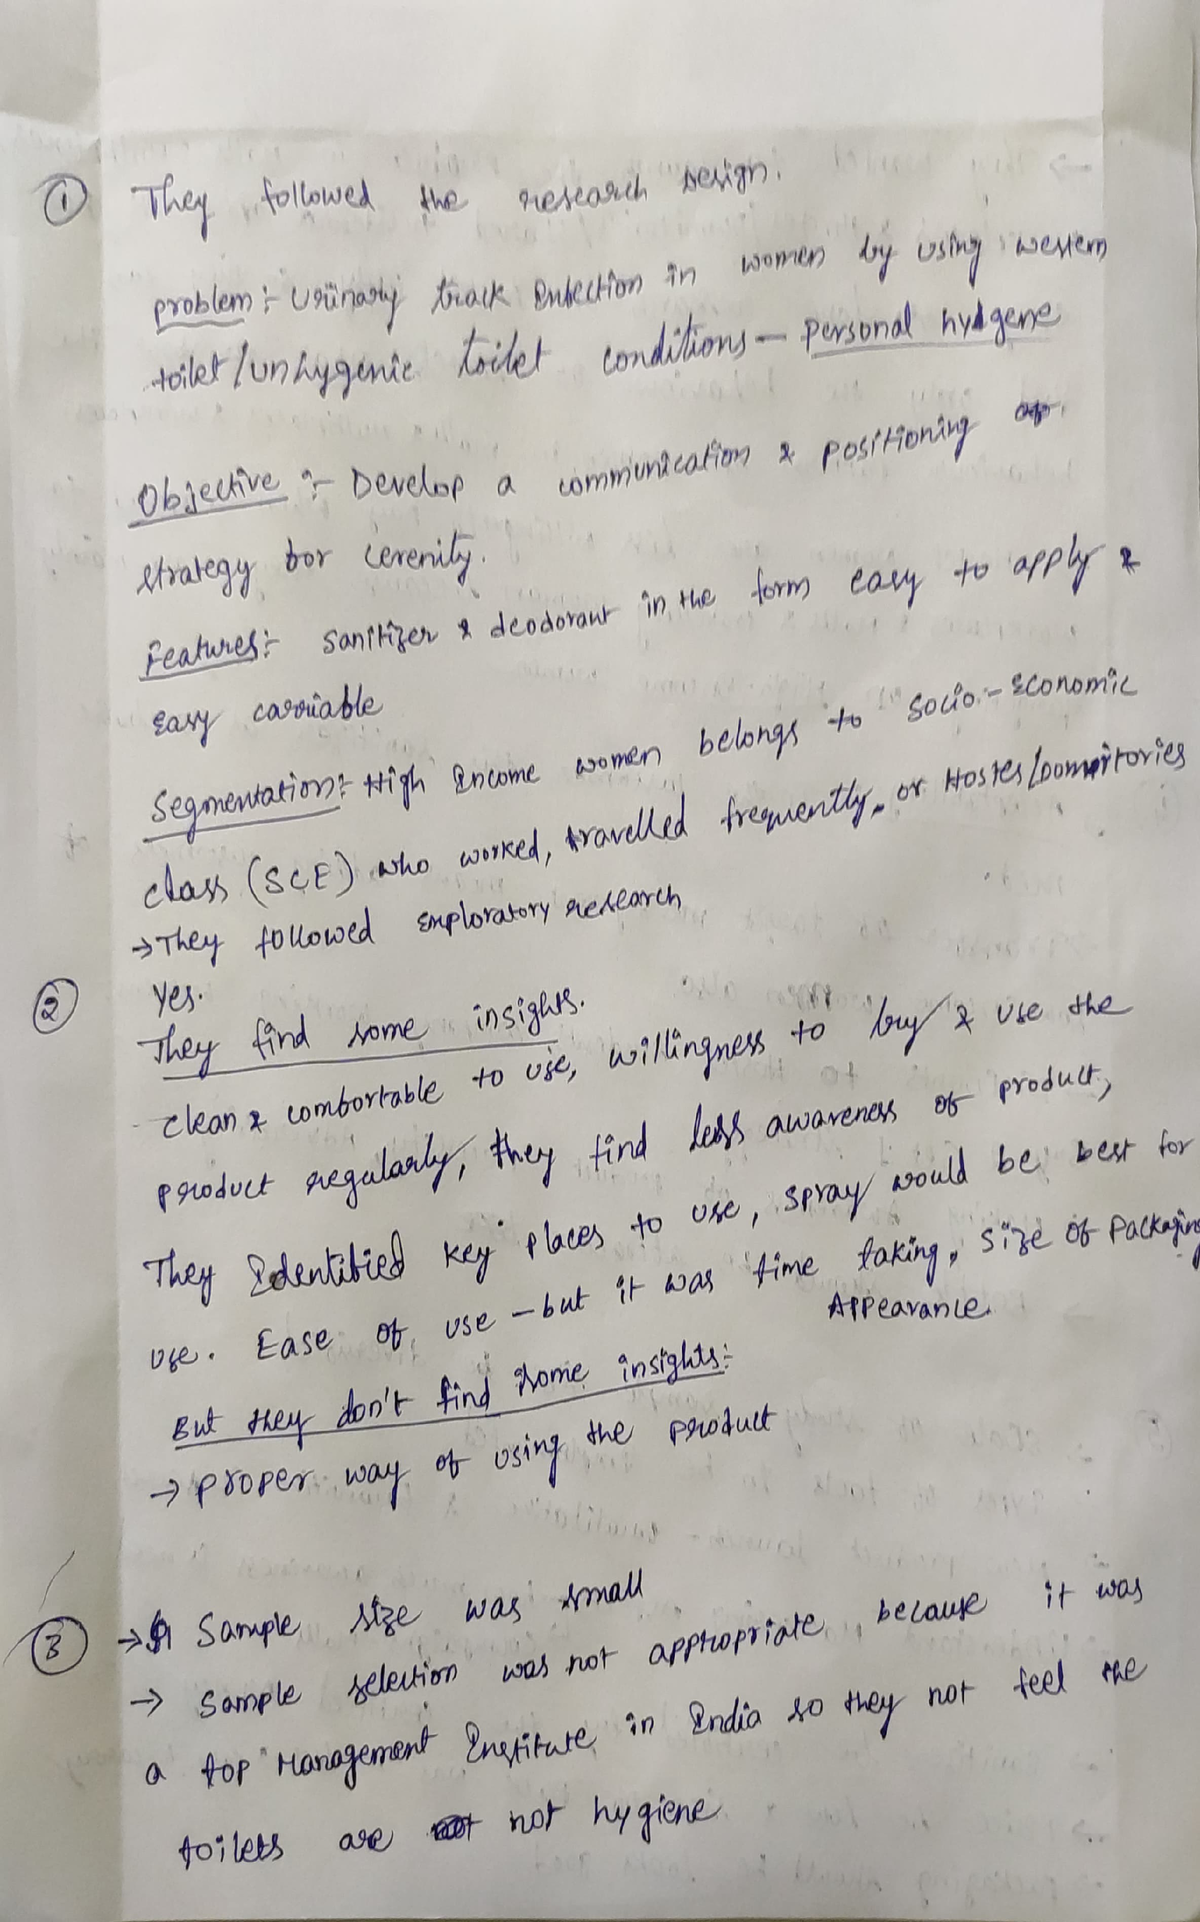 ① They followed the research design.
problem :- Urinary track Infection in women by using western
toilet/unhygenic toilet conditions – personal hydgene
Objective :- Develop a communication & positioning
strategy for cerenity.
Features:- Sanitizer & deodorant in the form easy to apply &
easy carriable
Segmentation:- High Income women belongs to Socio-Economic
class (SCE) who worked, travelled frequently, or Hostes/Domortories
→ They followed Exploratory research
② Yes.
They find some insights.
clean & comfortable to use, willingness to buy & use the
product regularly, they find less awareness of product,
They Identified key places to use, spray would be best for
use. Ease of use – but it was time taking, size of Packaging
Appearance.
But they don't find some insights:-
→ proper way of using the product
③ → Sample size was small
→ Sample selection was not appropriate, because it was
a top Management Institute in India so they not feel the
toilets are not hygiene